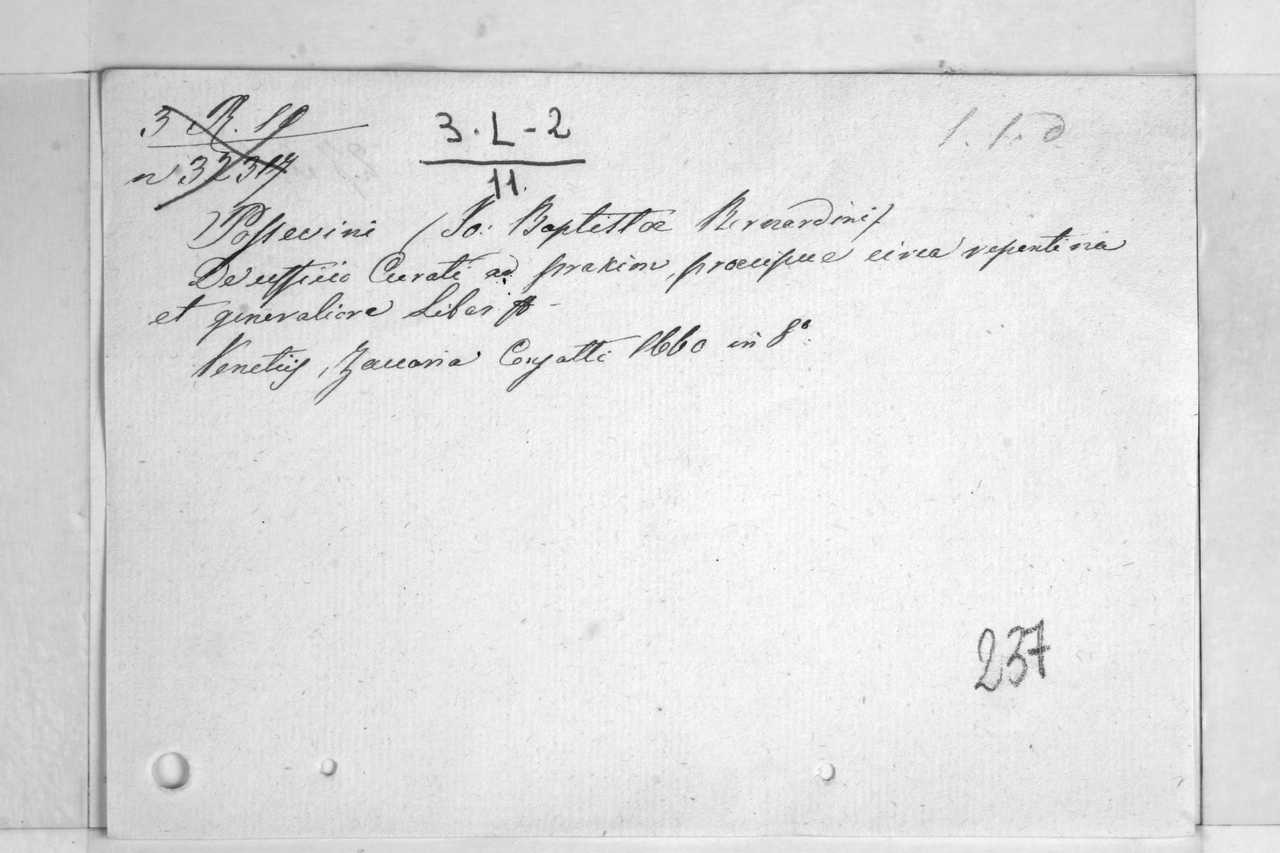 3. R. 11
n. 32317
3. L - 2
11.
Possevini (Jo: Baptistæ Bernardini)
De officio Curati ad praxim, præcipue circa repentina
et generaliora Liber
Venetiis, Zaccaria Conzatti 1660 in 8°:
237